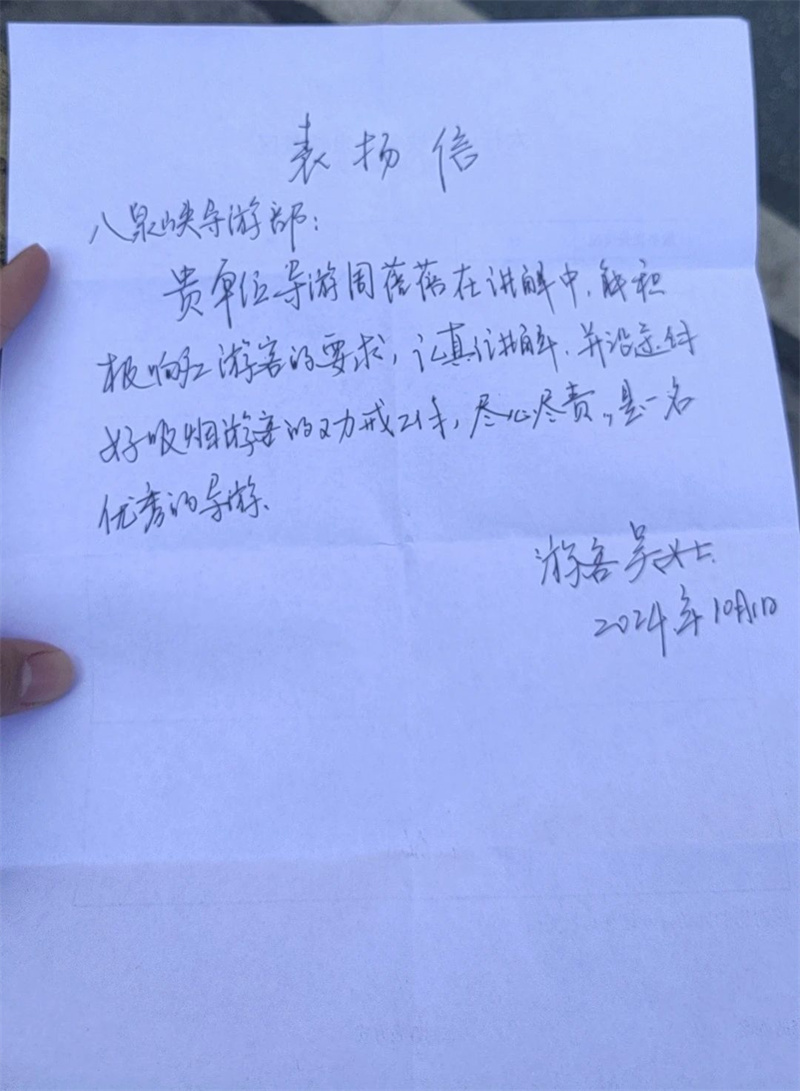 表扬信
八泉峡导游部:
贵单位导游周蓓蓓在讲解中,能积
极响应游客的要求,认真讲解,并沿途做
好吸烟游客的劝戒工作,尽心尽责,是一名
优秀的导游、
游客吴女士
2024年10月1日